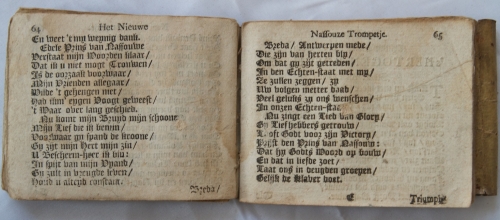 64 Het Nieuwe
En weet 't my weynig dank.
Edele Prins van Nassouwe
Verstaat mijn Woorden klaar/
Dat ik u niet mogt Trouwen/
Is de oorzaak voorwaar/
Mijn Vrienden allegaar/
Wilde 't gehengen niet/
Had ikm' eygen Voogt geweest/
't Waar over lang geschied.
Nu komt mijn Bruyd mijn schoone
Mijn Lief die ik bemin/
Voorwaar gy spand de kroone/
Gy zijt mijn Hert mijn zin/
U Bescherm-heer ik bin:
In spijt van mijn Vyand/
Gy zult in vreugde leven/
Houd u altyd constant.
Breda/
Nassouze Trompetje. 65
Breda/ Antwerpen mede/
Die zijn van herten bly/
Om dat gy zijt getreden/
In den Echten-staat met my/
Ze zullen zeggen/ zy
Uw volgen metter daad/
Veel geluks zy ons wenschen/
In onzen Echten-staat.
Nu zingt een Lied van Glory/
Gy Liefhebbers getrouw/
Looft Godt voor zijn Victory/
Prijst den Prins van Nassouw:
Dat hy Godts Woord op bouw/
En dat in liefde zoet/
Laat ons in deugden groeyen/
Gelijk de Klaver doet.
E Triumph